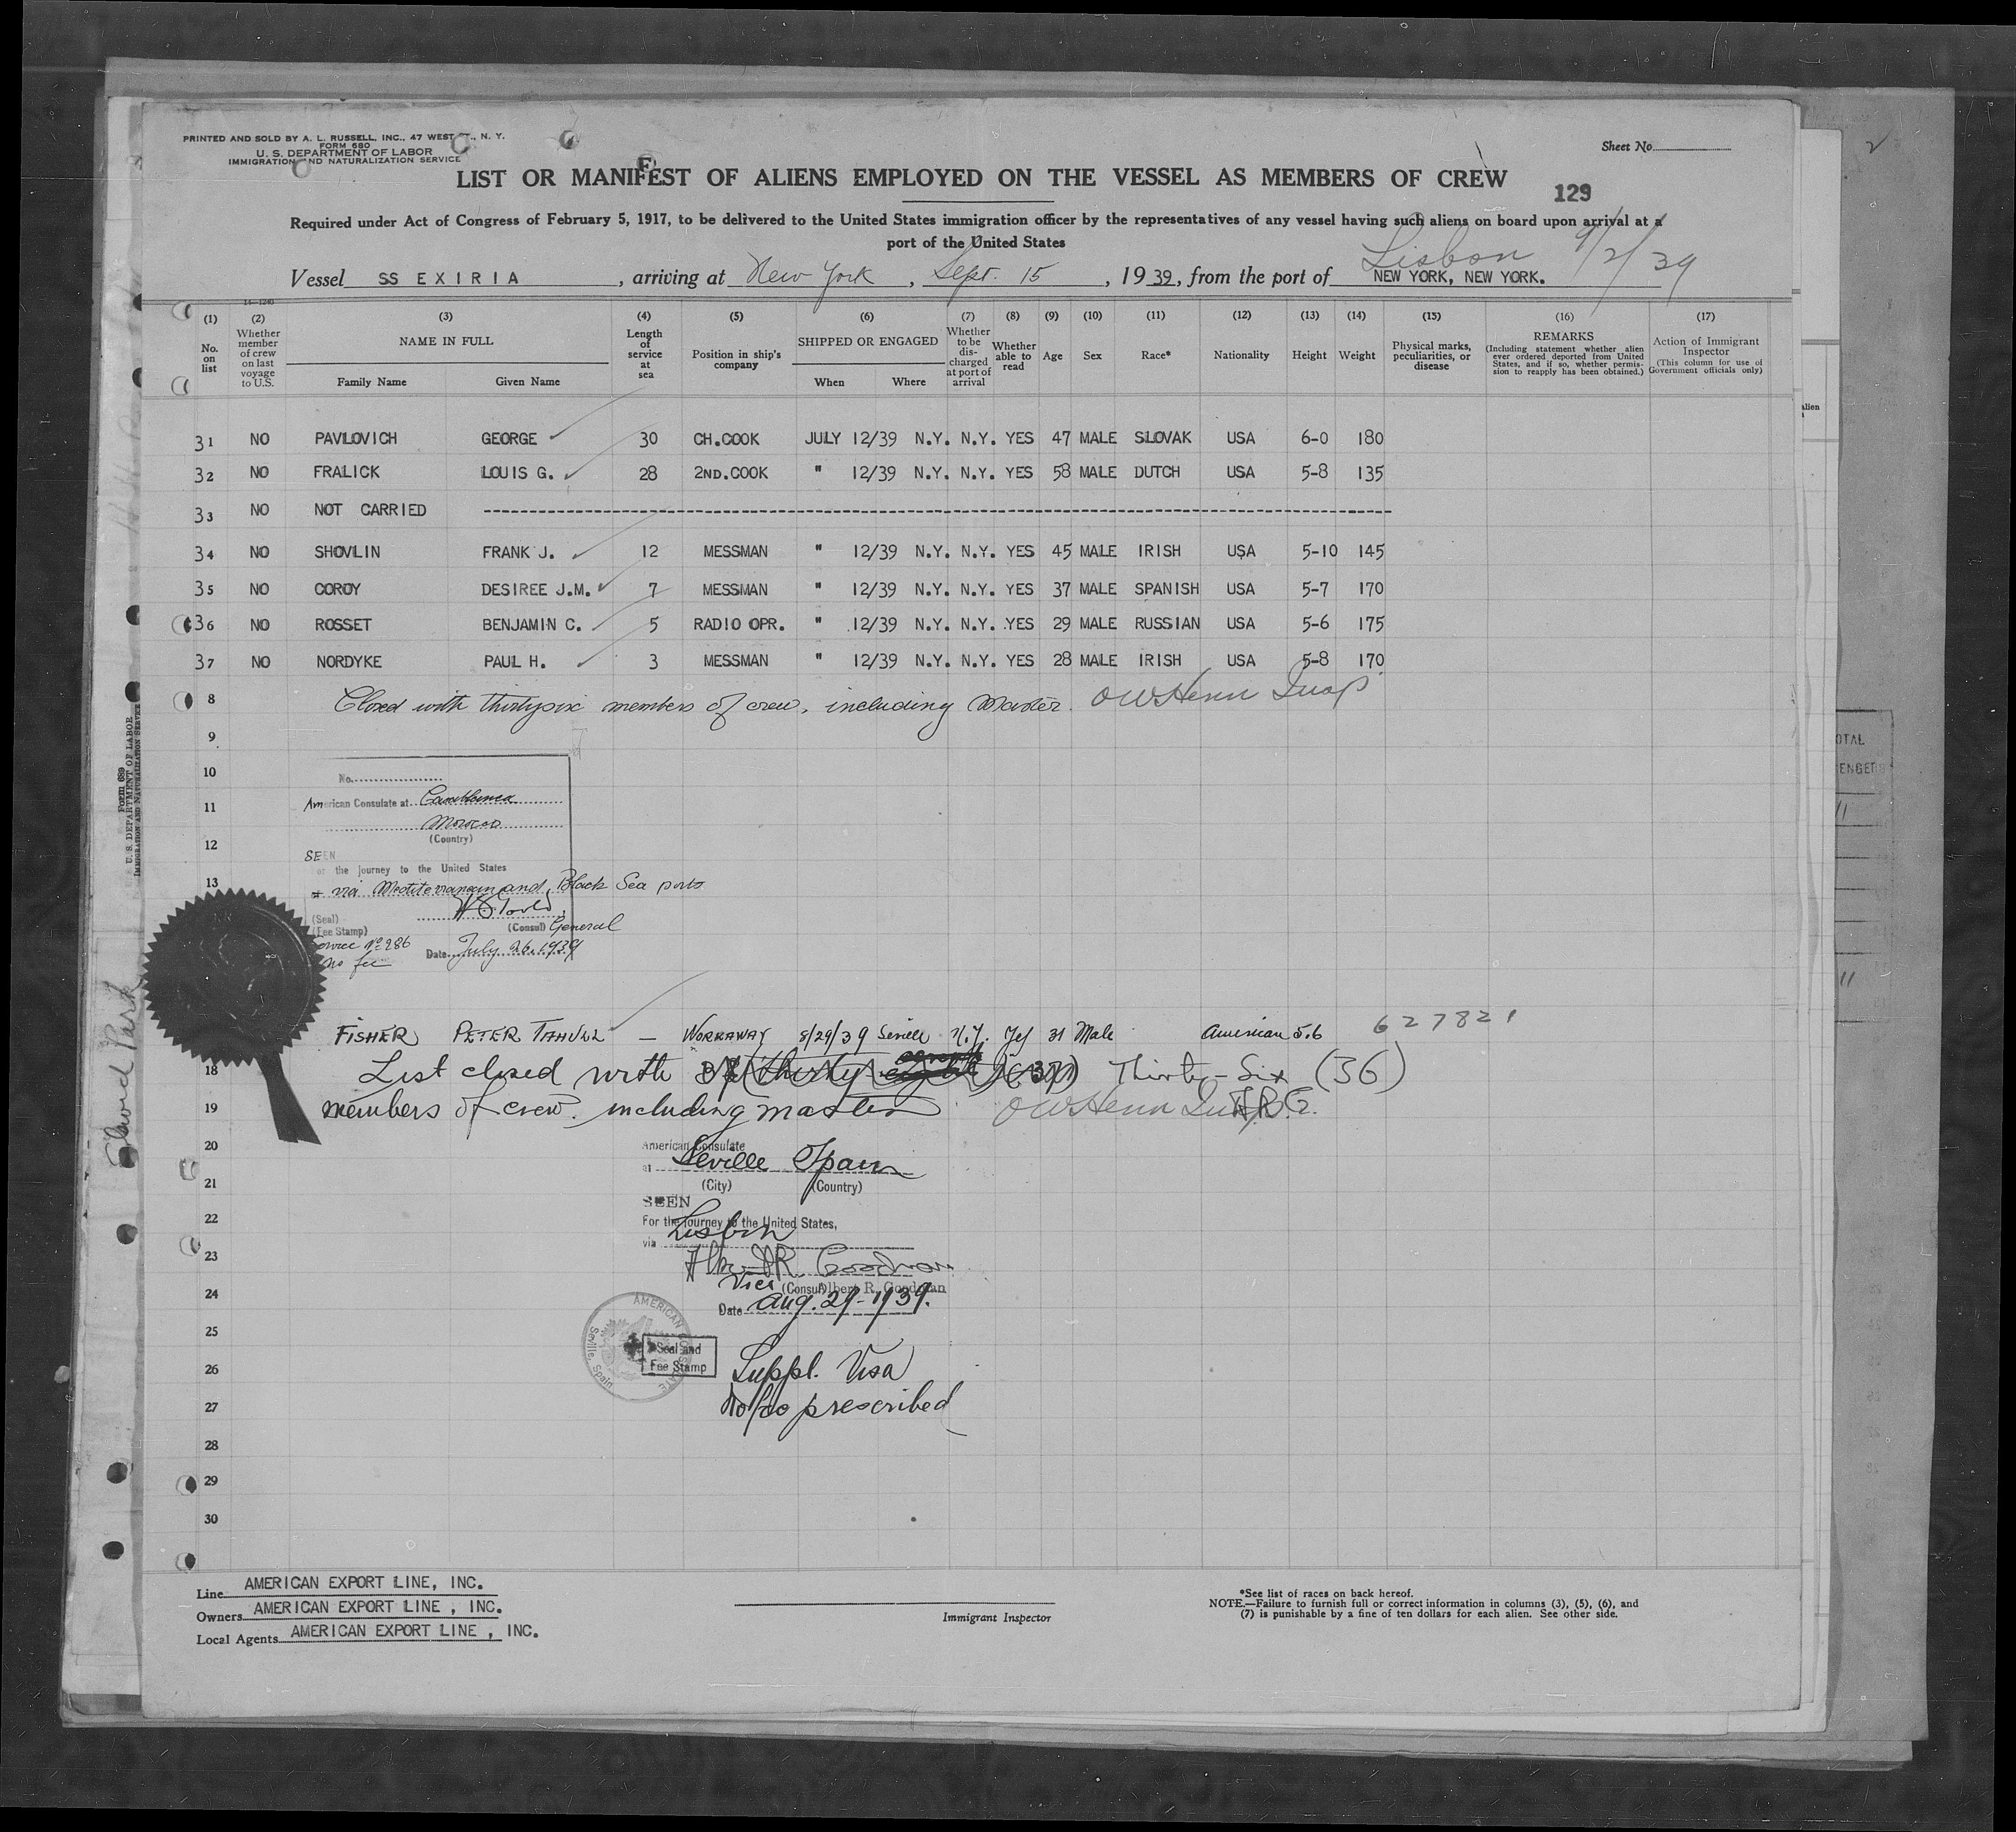 PRINTED AND SOLD BY A. L. RUSSELL, INC., 47 WEST ST., N. Y.
FORM 680
U. S. DEPARTMENT OF LABOR
IMMIGRATION AND NATURALIZATION SERVICE
Sheet No.
LIST OR MANIFEST OF ALIENS EMPLOYED ON THE VESSEL AS MEMBERS OF CREW
129
Required under Act of Congress of February 5, 1917, to be delivered to the United States immigration officer by the representatives of any vessel having such aliens on board upon arrival at a
port of the United States
Lisbon 9/2/39
Vessel SS EXIRIA, arriving at New York, Sept. 15, 1939, from the port of NEW YORK, NEW YORK.
14-1240
(1) (2) (3) (4) (5) (6) (7) (8) (9) (10) (11) (12) (13) (14) (15) (16) (17)
No. on list
Whether member of crew on last voyage to U.S.
NAME IN FULL
Family Name Given Name
Length of service at sea
Position in ship's company
SHIPPED OR ENGAGED
When Where
Whether to be discharged at port of arrival
Whether able to read
Age
Sex
Race*
Nationality
Height
Weight
Physical marks, peculiarities, or disease
REMARKS
(Including statement whether alien ever ordered deported from United States, and if so, whether permission to reapply has been obtained.)
Action of Immigrant Inspector
(This column for use of Government officials only)
31 NO PAVILOVICH GEORGE 30 CH.COOK JULY 12/39 N.Y. N.Y. YES 47 MALE SLOVAK USA 6-0 180
32 NO FRALICK LOUIS G. 28 2ND.COOK " 12/39 N.Y. N.Y. YES 58 MALE DUTCH USA 5-8 135
33 NO NOT CARRIED
34 NO SHOVLIN FRANK J. 12 MESSMAN " 12/39 N.Y. N.Y. YES 45 MALE IRISH USA 5-10 145
35 NO COROY DESIREE J.M. 7 MESSMAN " 12/39 N.Y. N.Y. YES 37 MALE SPANISH USA 5-7 170
36 NO ROSSET BENJAMIN C. 5 RADIO OPR. " 12/39 N.Y. N.Y. YES 29 MALE RUSSIAN USA 5-6 175
37 NO NORDYKE PAUL H. 3 MESSMAN " 12/39 N.Y. N.Y. YES 28 MALE IRISH USA 5-8 170
8 Closed with thirtysix members of crew, including Master. OWHenn Insp
9
10
No.
11
American Consulate at Casablanca
Morocco
(Country)
12
SEEN
for the journey to the United States
13
via Mediterranean and Black Sea ports
(Seal)
(Fee Stamp)
(Consul) General
Service No 286
no fee
Date July 26, 1939
FISHER PETER TAHULL — WORKAWAY 8/29/39 Seville N.Y. Yes 31 Male American 5.6 627821
18 List closed with Thirty-Six (36)
19 members of crew. including master OWHenn Insp
20
American Consulate
at Seville Spain
21
(City) (Country)
SEEN
22
For the journey to the United States,
via Lisbon
23
Vice (Consul) Albert R. Goodman
24
Date Aug. 29-1939.
25
AMERICAN CONSULATE
Seville, Spain
Seal and
Fee Stamp
26
Suppl. Visa
27
No fee prescribed
28
29
30
Line AMERICAN EXPORT LINE, INC.
Owners AMERICAN EXPORT LINE, INC.
Local Agents AMERICAN EXPORT LINE, INC.
Immigrant Inspector
*See list of races on back hereof.
NOTE.—Failure to furnish full or correct information in columns (3), (5), (6), and
(7) is punishable by a fine of ten dollars for each alien. See other side.
Form 689
U. S. DEPARTMENT OF LABOR
IMMIGRATION AND NATURALIZATION SERVICE